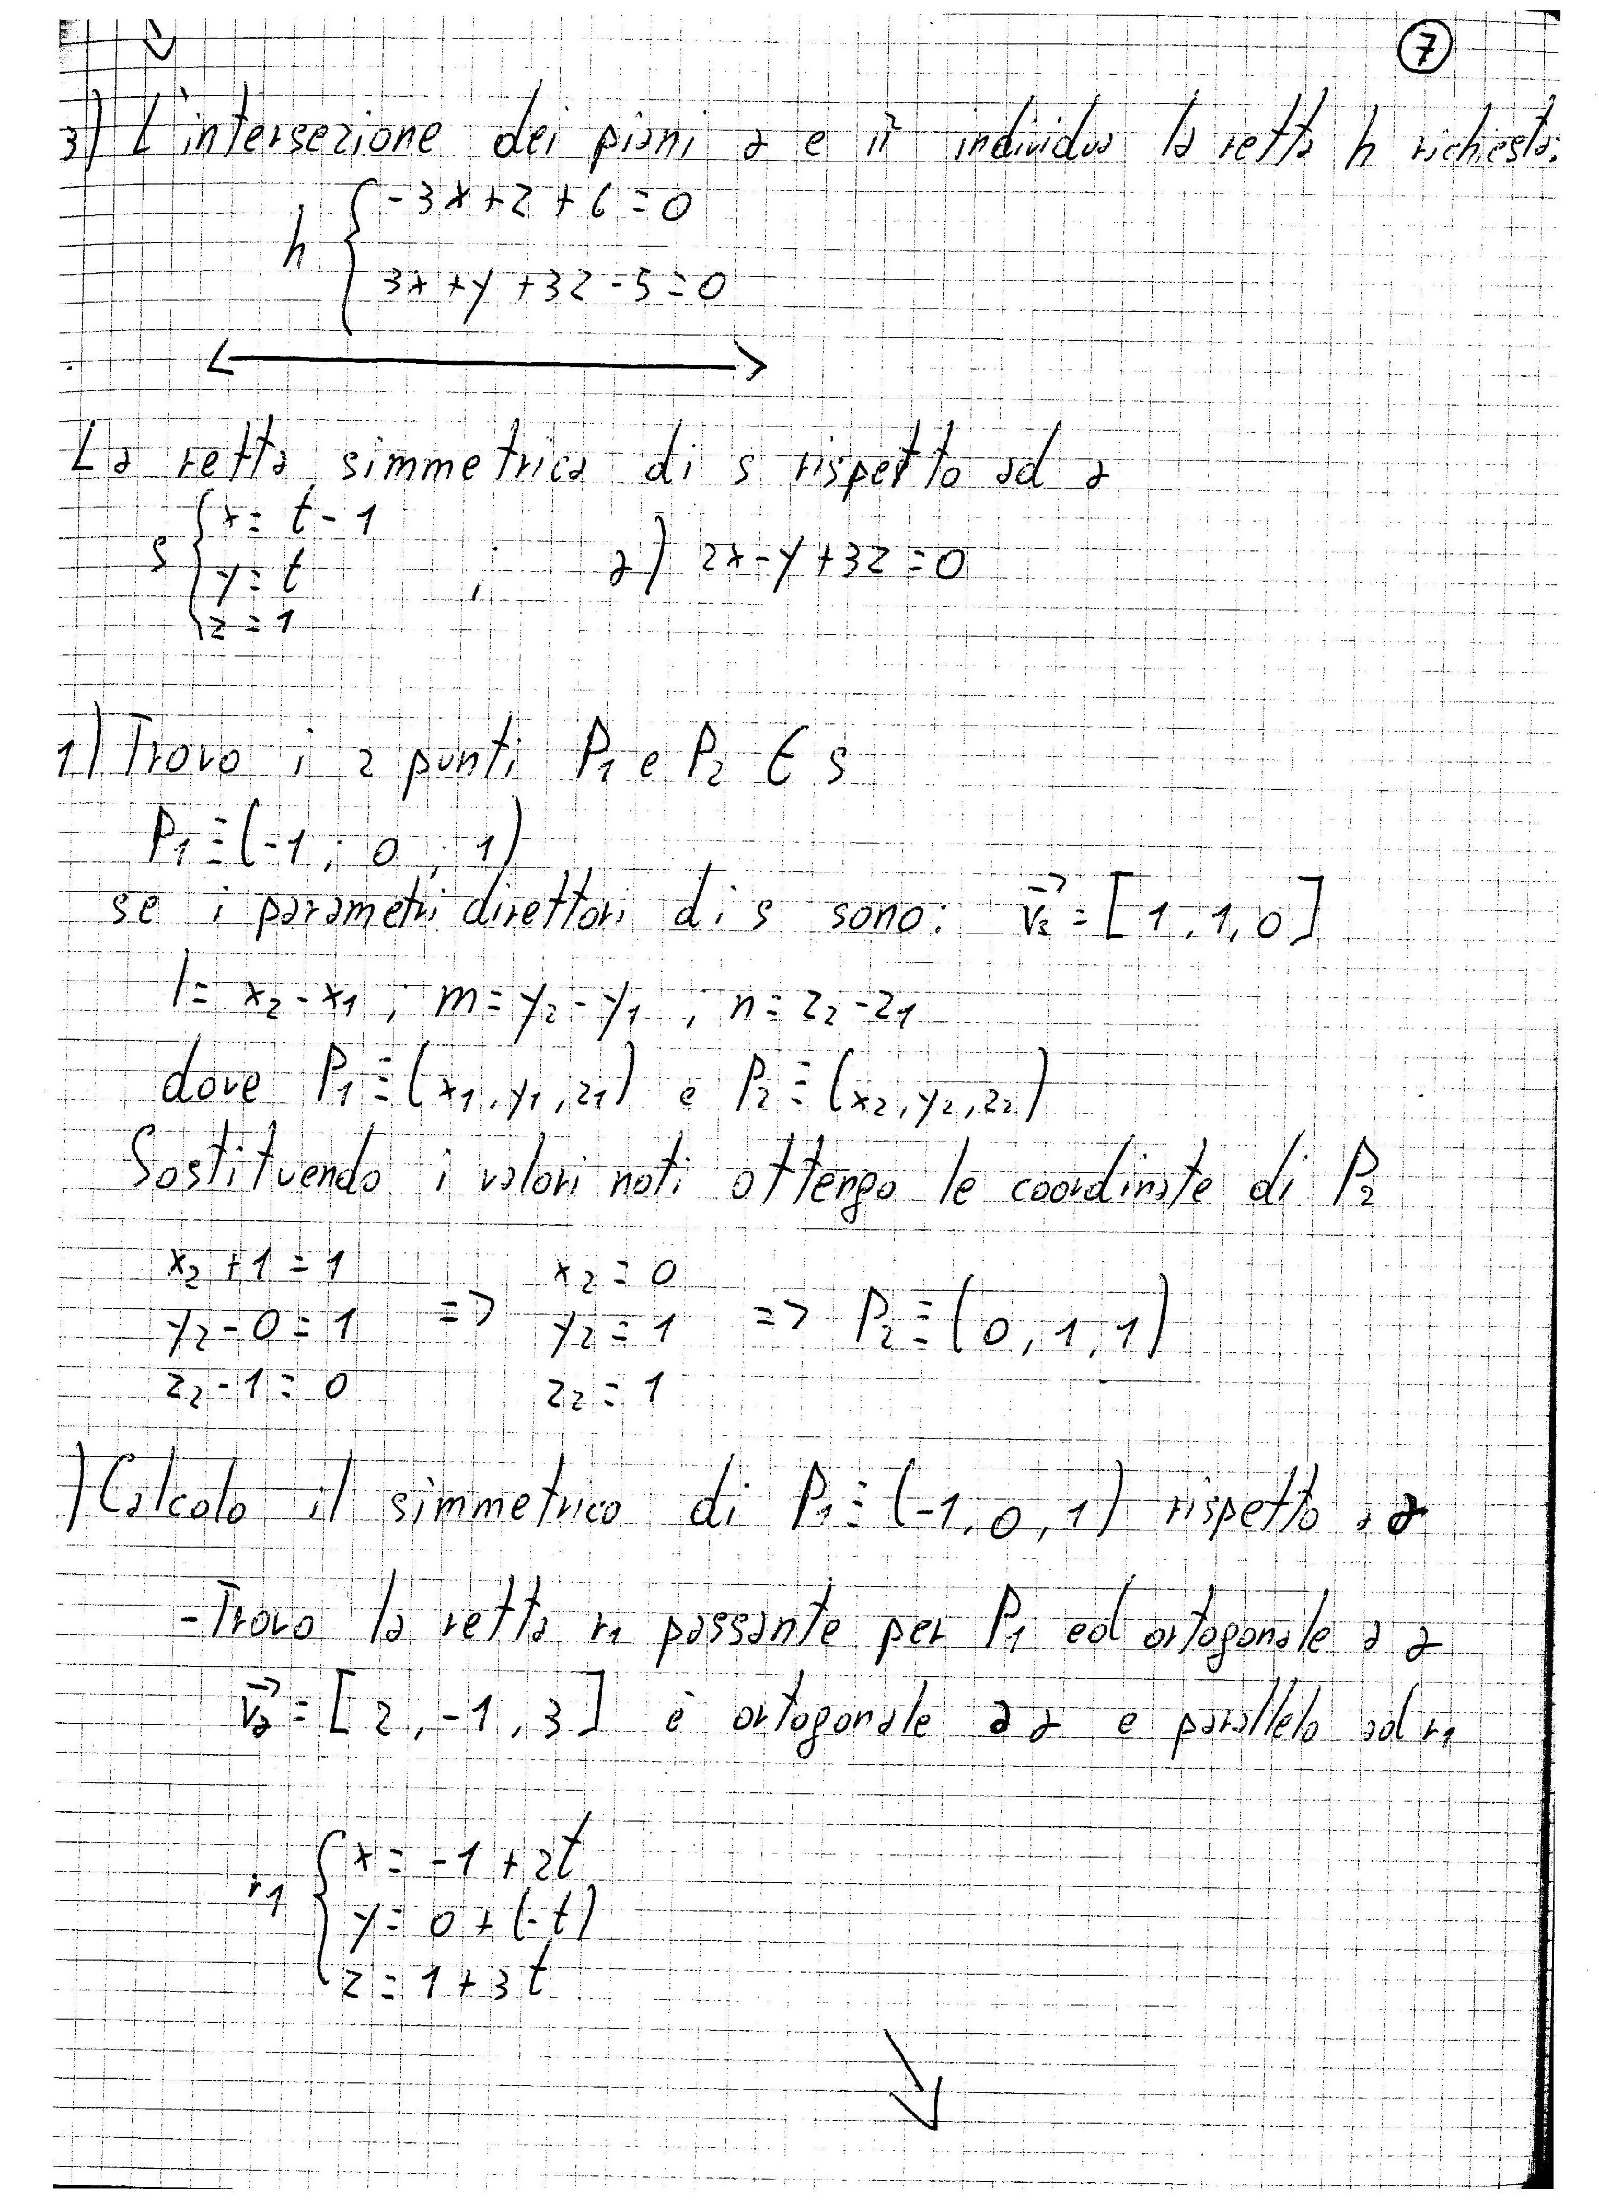 7
3) L'intersezione dei piani a e π individua la retta h richiesta:
h { -3x+z+6=0
3x+y+3z-5=0
La retta simmetrica di s rispetto ad a
s { x = t-1
y = t ; a) 2x-y+3z=0
z = 1
1) Trovo i 2 punti P1 e P2 ∈ s
P1≡(-1, 0, 1)
se i parametri direttori di s sono: vs = [1,1,0]
l= x2-x1 ; m=y2-y1 ; n=z2-z1
dove P1≡(x1,y1,z1) e P2≡(x2,y2,z2)
Sostituendo i valori noti ottengo le coordinate di P2
x2+1=1 x2=0
y2-0=1 => y2=1 => P2≡(0,1,1)
z2-1=0 z2=1
) Calcolo il simmetrico di P1≡(-1,0,1) rispetto a a
- Trovo la retta r1 passante per P1 ed ortogonale a a
va = [2,-1,3] è ortogonale a a e parallelo ad r1
r1 { x= -1+2t
y= 0+(-t)
z= 1+3t